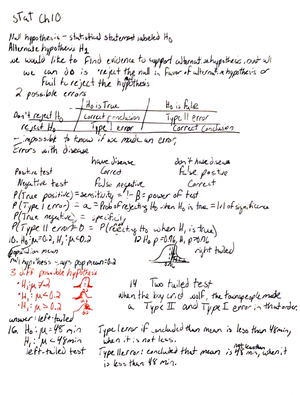 Stat Ch10
Null hypothesis - statistical statement labeled H0
Alternate hypothesis H1
we would like to find evidence to support alternate hypothesis, but all
we can do is "reject the null in favor of alternate hypothesis or
fail to reject the hypothesis
2 possible errors
H0 is True H0 is False
Don't reject H0 correct conclusion Type II error
reject H0 Type I error Correct Conclusion
- impossible to know if we made an error,
Errors with disease
have disease don't have disease
Positive test Correct False positive
Negative test False negative Correct
P(True positive) = sensitivity = 1-B = power of test
P(Type I error) = a = Prob of rejecting H0 when H0 is true = lvl of significance
P(True negative) = specificity
P(Type II error) = P( H0 when H1 is true)
10. H0: μ=0.2, H1: μ<0.2 12 H0 p=0.76, H1 p>0.76
mean right tailed
null hypothesis says pop mean=0.2
3 diff possible hypothesis
• H1: μ≠.2 14 Two tailed test
• H1: μ<0.2 when the boy cried wolf, the townspeople made
• H1: μ>0.2 a Type II and Type I error in that order.
answer: left-tailed
16. H0: μ=48 min Type I error if concluded than mean is less than 48min,
H1: μ<48min when it is not less.
left-tailed test Type II error: concluded that mean is not less than 48 min, when it
is less than 48 min.